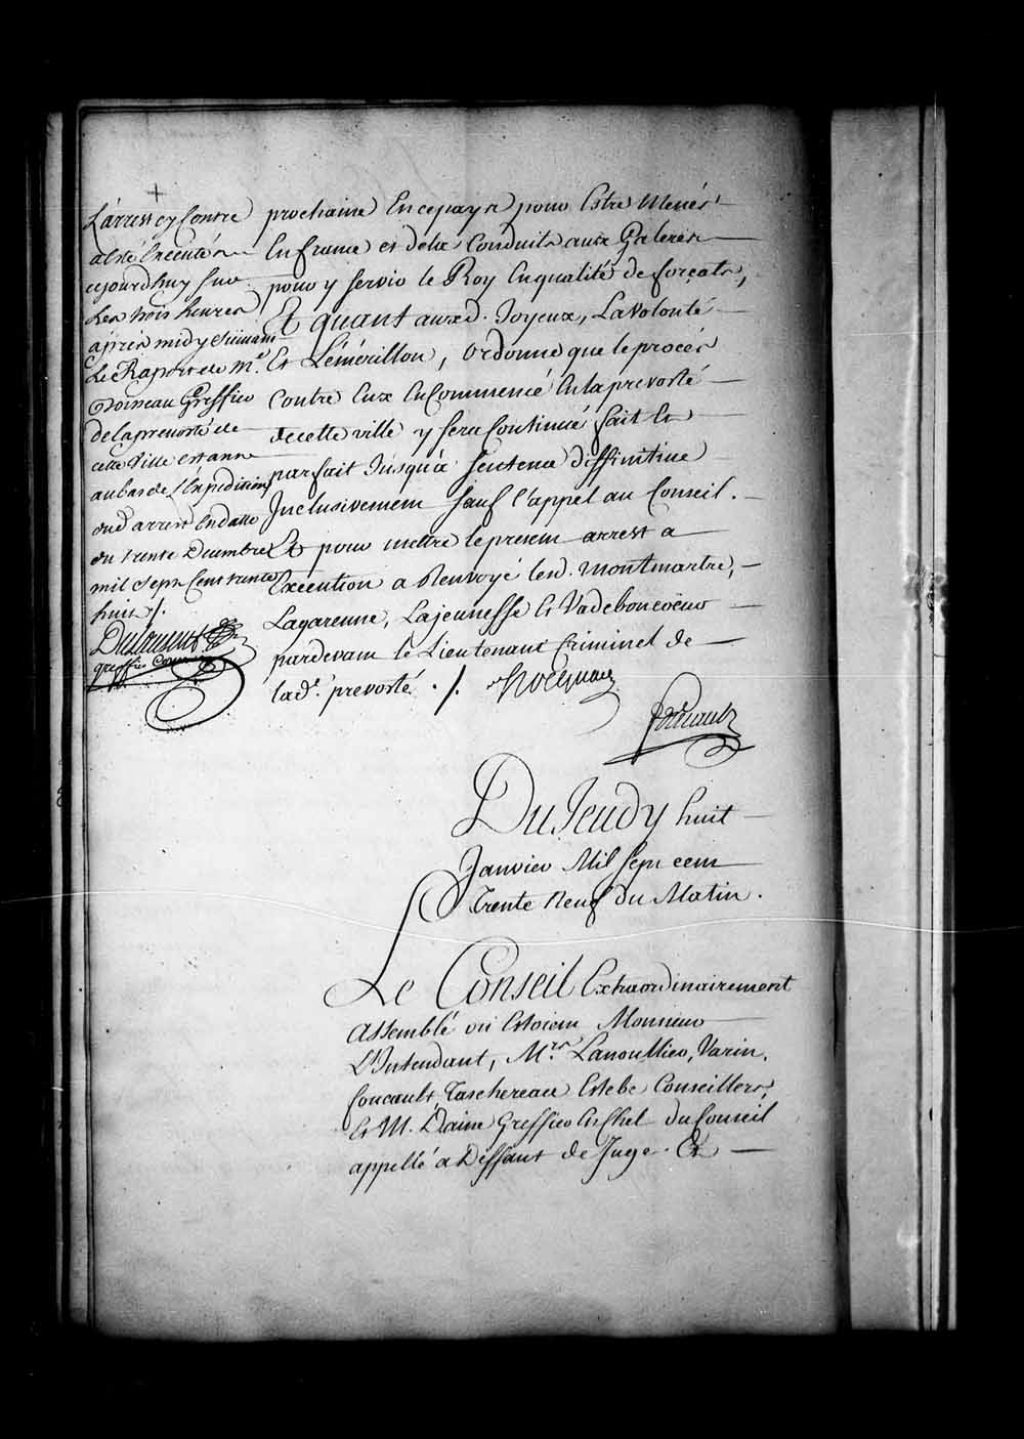 +
L'arrest cy Contre
a esté Executé
ejourdhuy sur
Les trois heures
apres midy suivant
Le Raport de Me.
Boisseau Greffier
de la prevosté de
cette Ville estant
au bas de l'Expedition
dud arrest En datte
du trente Decembre
mil Sept Cent trente
huit /.
greffier
prochaine En ce pays pour Estre Menés
En france et dela Conduits aux Galeres
pour y servir le Roy En qualité de forçats,
Et quant auxd. Joyeux, La Volonté
Et Lémérillon, ordonne que le procés
Contre Eux Encommencé En la prevosté
de cette ville y sera Continué fait Et
parfait Jusqu'a Sentence diffinitive
Inclusivement sauf l'appel au Conseil.
Et pour mettre le present arrest a
Execution a Renvoyé lesd. Montmartre,
Lagarenne, Lajeunesse Et Vadeboncoeur
pardevant le Lieutenant Criminel de
lade. prevosté ./.
Hocquart
Foucault
Du Jeudy huit
Janvier Mil Sept cent
Trente Neuf du Matin.
Le Conseil Extraordinairement
Assemblé ou Estoient Monsieur
L'Intendant, Mrs. Lanoullier, Varin,
foucault, Taschereau Estebe Conseillers,
Et M. Daine Greffier En Chef du Conseil
appellé a Deffaut de Juge. Et